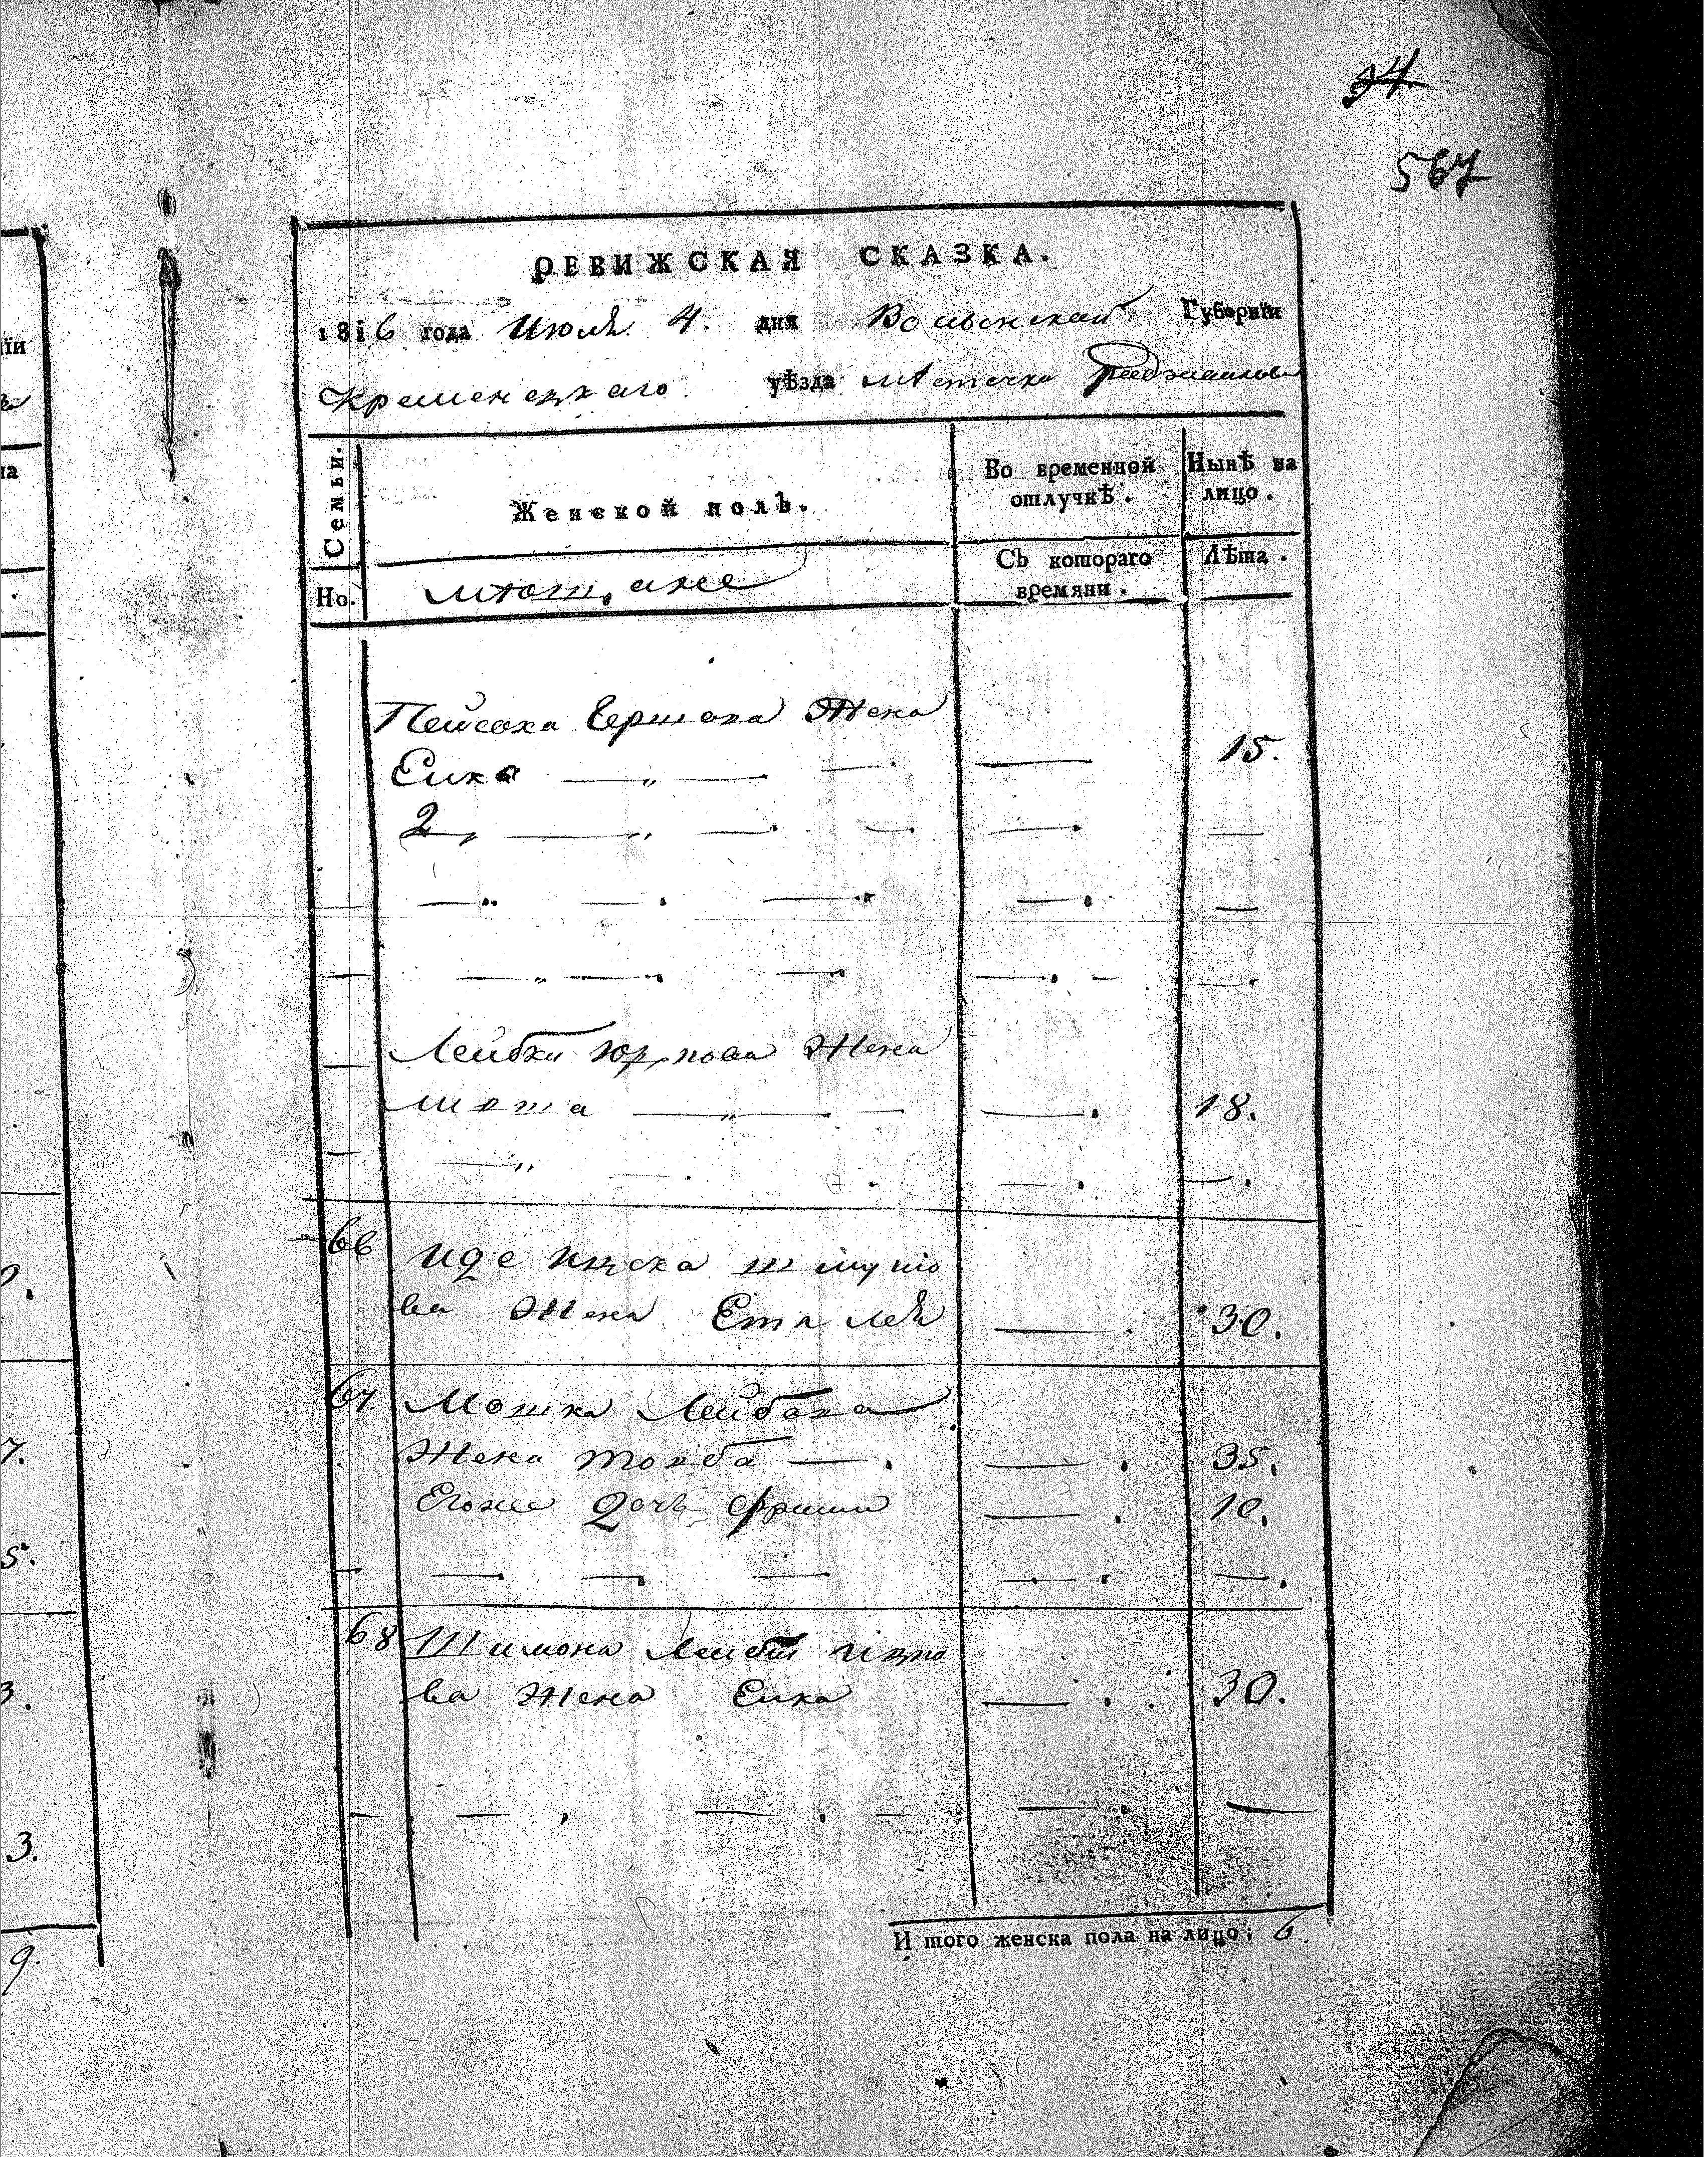 34.
567
РЕВИЖСКАЯ СКАЗКА.
1816 года Июля 4. дня Волынской Губернїи
Кременецкаго уѣзда мѣстечка
Семьи.
Женской полъ.
Во временной отлучкѣ.
Нынѣ на лицо.
Но.
мѣщане
Съ котораго времяни.
Лѣта.
Пейсаха Гершова Жена
Сика — „ — . — — 15.
2, — „ — . — . — . —
— „ — . — . — . —
— „ — . — . — . — .
Лейбки Жена
— „ — . — — . 18.
— „ — . — . — .
66 Иде Ицека Шмуло
ва Жена Ета Лея — . 30.
67. Мошка Лейбова
Жена Тойба — . — . 35.
Егоже Дочь — . 10.
— — . — . — — . . — .
68 Шимона Лейби
ва Жена Сика — . . 30.
— — , — . — — . —
И того женска пола на лицо; 6.
їи
на
7.
5.
3.
3.
9.